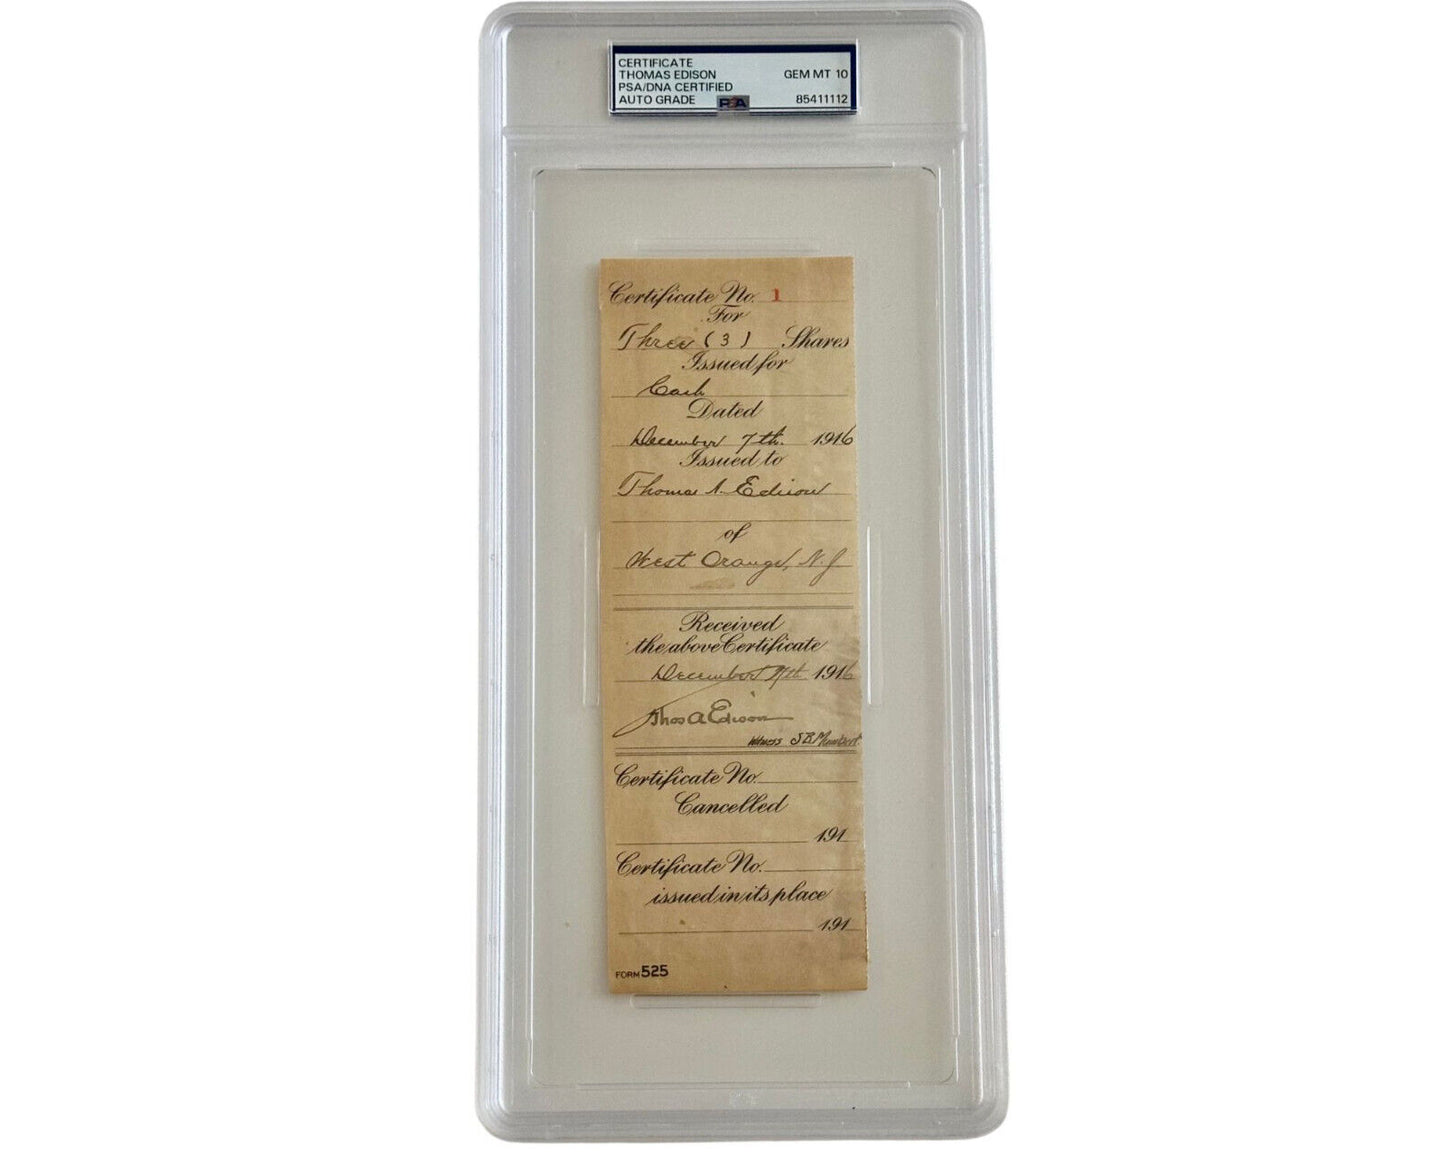 CERTIFICATE
THOMAS EDISON GEM MT 10
PSA/DNA CERTIFIED
AUTO GRADE PSA 85411112
Certificate No. 1
For
Three (3) Shares
Issued for
Cash
Dated
December 7th. 1916
Issued to
Thomas A. Edison
of
West Orange, N.J.
Received
the above Certificate
December 7th 1916
Thos A Edison
Witness
Certificate No.
Cancelled
191
Certificate No.
issued in its place
191
FORM 525